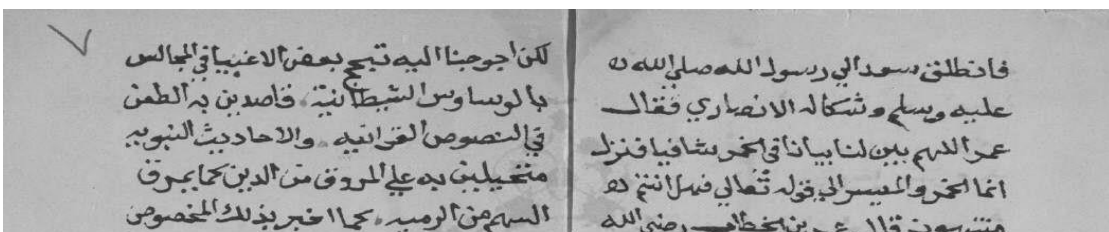 فانطلق سعد الي رسول الله صلي الله
عليه وسلم وشكا له الانصاري فقال
عمر اللهم بين لنا بيانا في الخمر شافيا فنزل
انما الخمر والميسر الي قوله تعالي فهل انتم
منتهون قال عمر بن الخطاب رضي الله
لكن اجوجنا اليه تبجح بعض الاغبيا في المجالس
بالوساوس الشيطانية قاصدين به الطعن
في النصوص القرانيه والاحاديث النبويه
متخيلين به علي المروق من الدين كما يمرق
السهم من الرميه كما اخبر بذلك المخصوص